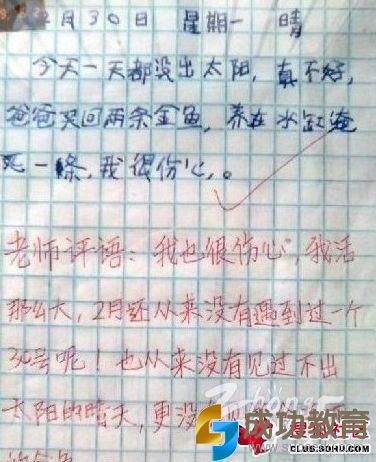 2月30日 星期一 晴
今天一天都没出太阳，真不好，
爸爸买回两条金鱼，养在水缸淹
死一條，我很伤心，。
老师评语：我也很伤心，我活
那么大，2月还从来没有遇到过一个
30号呢！也从来没有见过不出
太阳的晴天，更没
成功教育
CLUB.SOHU.COM